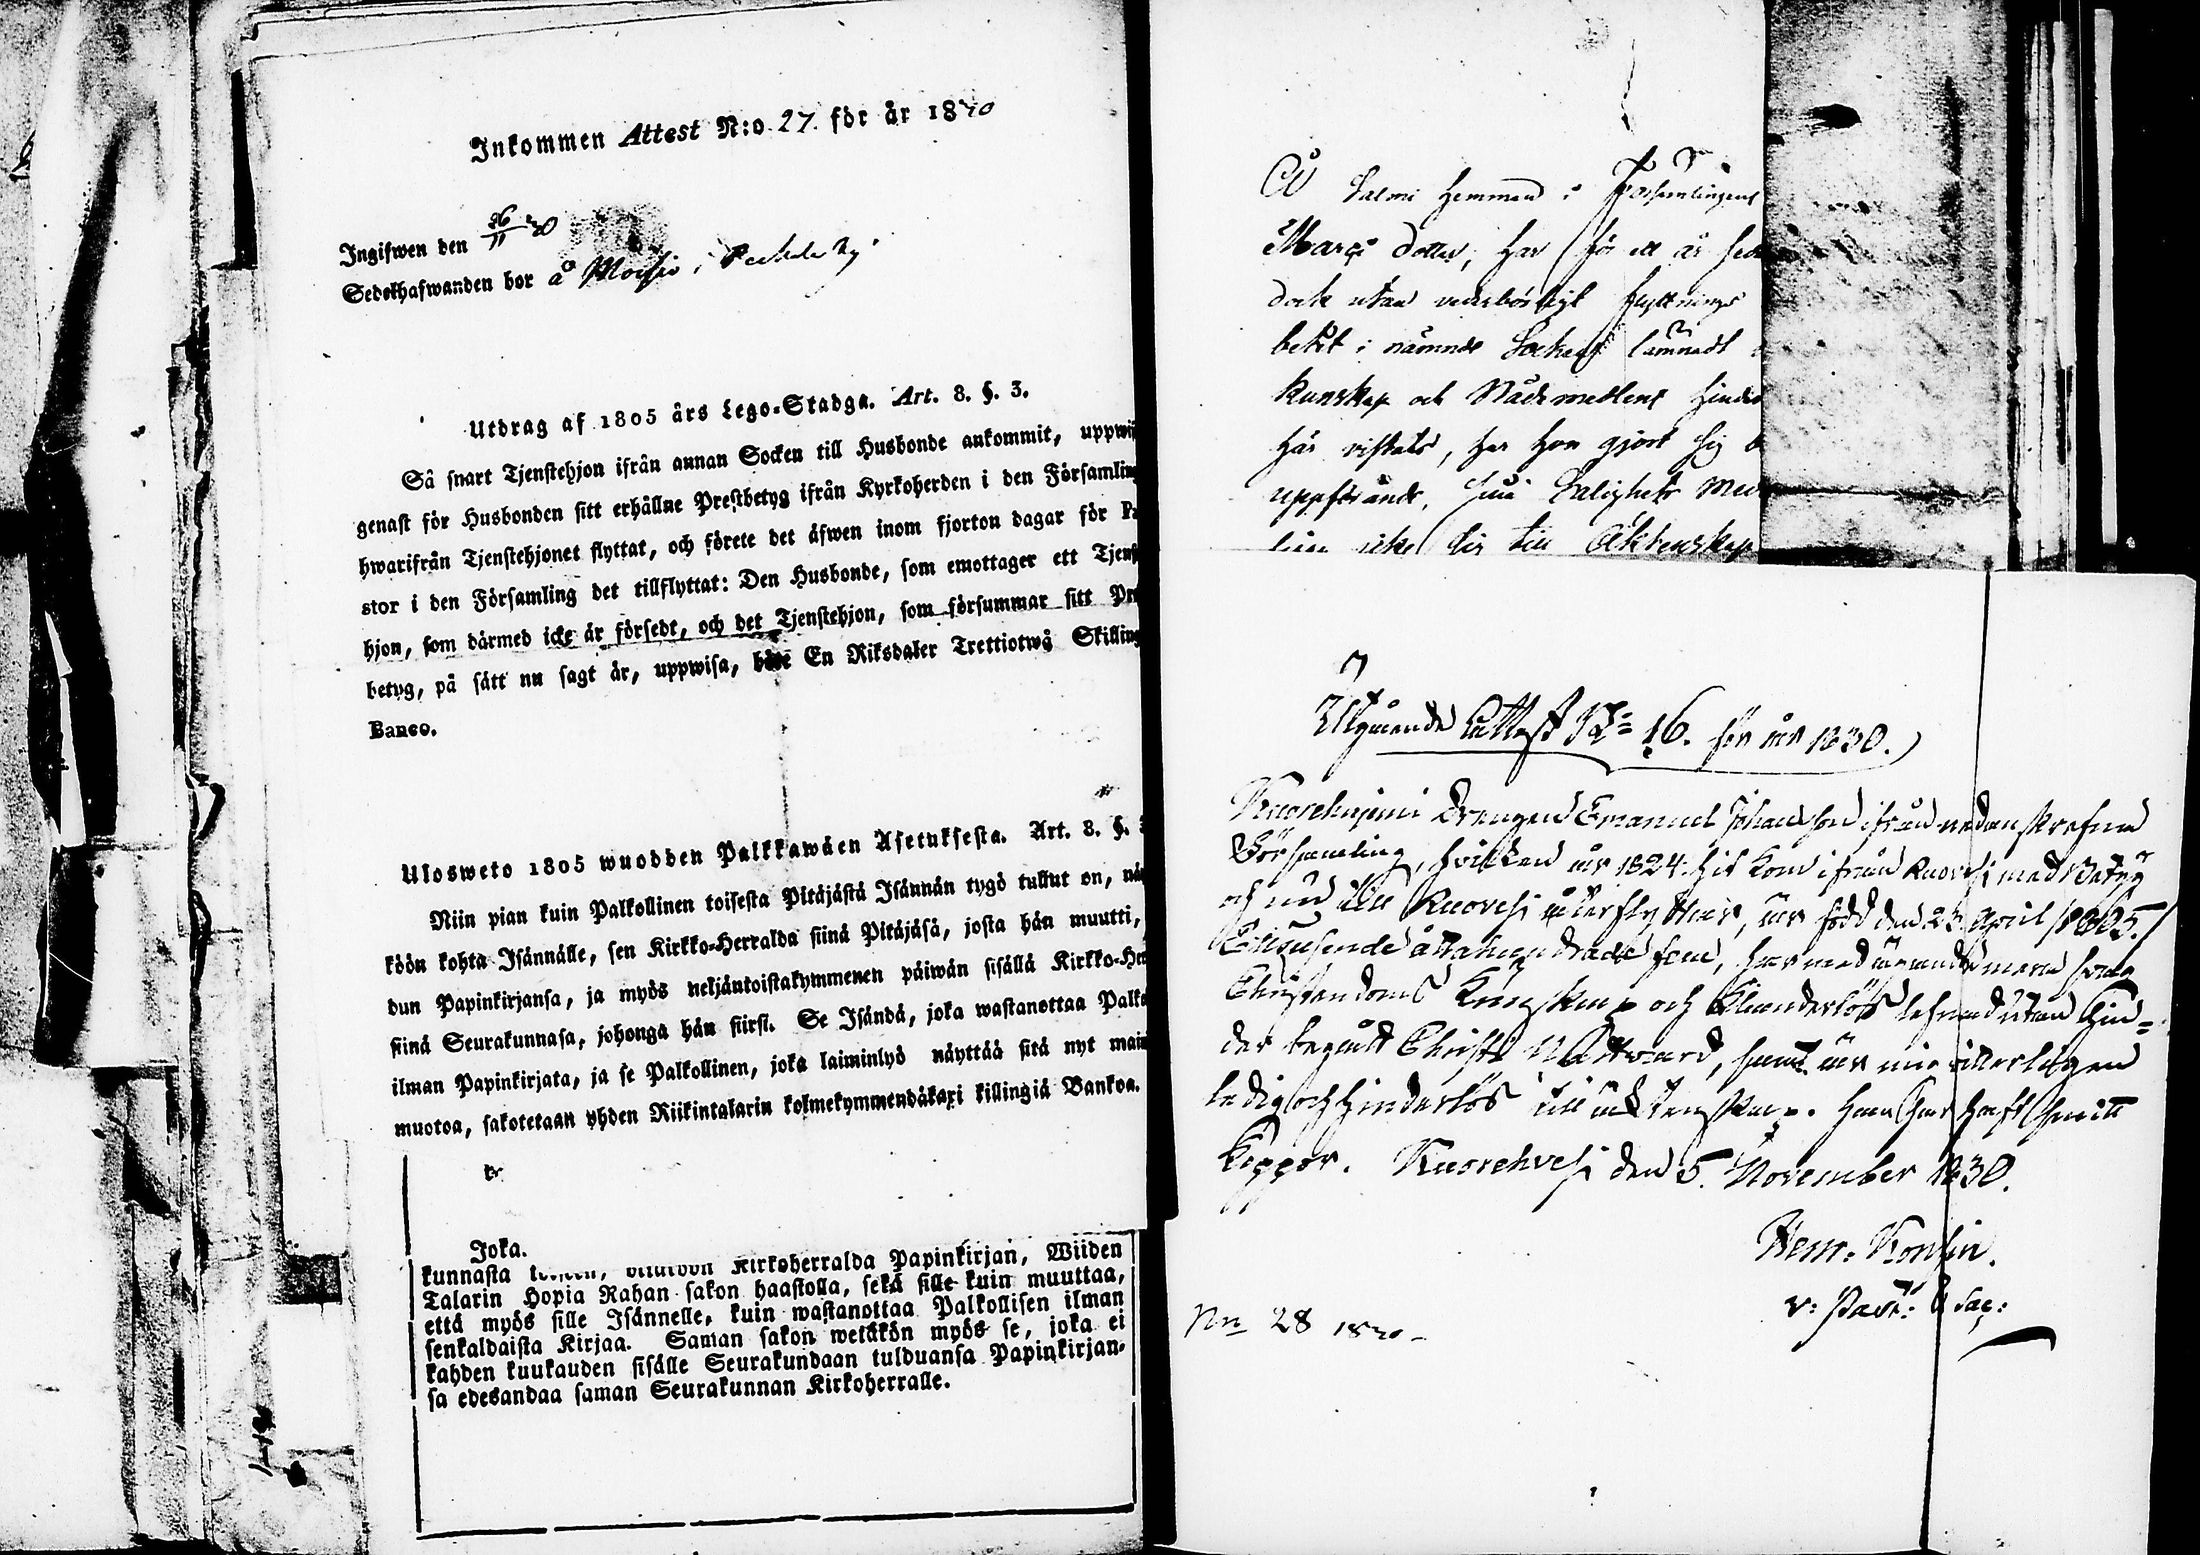 Inkommen Attest N:o 27. för år 1830
Ingifwen den 26/11 30
Sedelhafwanden bor å Moisio i
Utdrag af 1805 års Lego-Stadga. Art. 8. §. 3.
Så snart Tjenstehjon ifrån annan Socken till Husbonde ankommit, uppwi
genast för Husbonden sitt erhållne Prestbetyg ifrån Kyrkoherden i den Församling
hwarifrån Tjenstehjonet flyttat, och förete det äfwen inom fjorton dagar för Pa
stor i den Församling det tillflyttat: Den Husbonde, som emottager ett Tjenst
hjon, som därmed icke är försedt, och det Tjenstehjon, som försummar sitt Pre
betyg, på sätt nu sagt är, uppwisa, böte En Riksdaler Trettiotwå Skilling
Banco.
Ulosweto 1805 wuodden Palkkawäen Asetuksesta. Art. 8. §. 3
Niin pian kuin Palkollinen toisesta Pitäjästä Isännän tygö tullut on, nä
köön kohta Isännälle, sen Kirkko-Herralda siinä Pitäjäsä, josta hän muutti,
dun Papinkirjansa, ja myös neljäntoistakymmenen päiwän sisällä Kirkko-Her
siinä Seurakunnasa, johonga hän siirsi. Se Isändä, joka wastanottaa Palko
ilman Papinkirjata, ja se Palkollinen, joka laiminlyö näyttää sitä nyt main
muotoa, sakotetaan yhden Riikintalarin kolmekymmendäkaxi killingiä Bankoa.
Joka.
kunnasta Kirkoherralda Papinkirjan, Wiiden
Talarin Hopia Rahan sakon haastolla, sekä sille kuin muuttaa,
että myös sille Isännelle, kuin wastanottaa Palkollisen ilman
senkaldaista Kirjaa. Saman sakon wetäkön myös se, joka ei
kahden kuukauden sisälle Seurakundaan tulduansa Papinkirjan-
sa edesandaa saman Seurakunnan Kirkoherralle.
Salmi Hemman i Församlingens
Mar dotter, har för ett år sed
dock utan vederbörligt flyttnings
betet i nämnde Socken lämnadt
kunskap och Nådemedlens hinder
här vistats, har hon gjort sig b
uppförande, sina Salighets Med
icke lis till Äktenskap
Utgående Attest No 16. för år 1830.
Drengen Emanuel Johansson ifrån nedanskrefne
Församling, hvilken år 1824. hit kom ifrån Ruovesi med Betyg
och nu till Ruovesi återflyttar, är född den 23. April /1805./
Ettusende åttahundrade fem, har med ägande
Christendoms Kunskap och Klanderlös lefnad utan Hin=
der begått Christi Nattvard, samt är
ledig och hinderlös till äktenskap. Han har haft
Koppor. Kuorehvesi den 5. November 1830.
Henr.
v: Past: & Sac:
No 28 1830